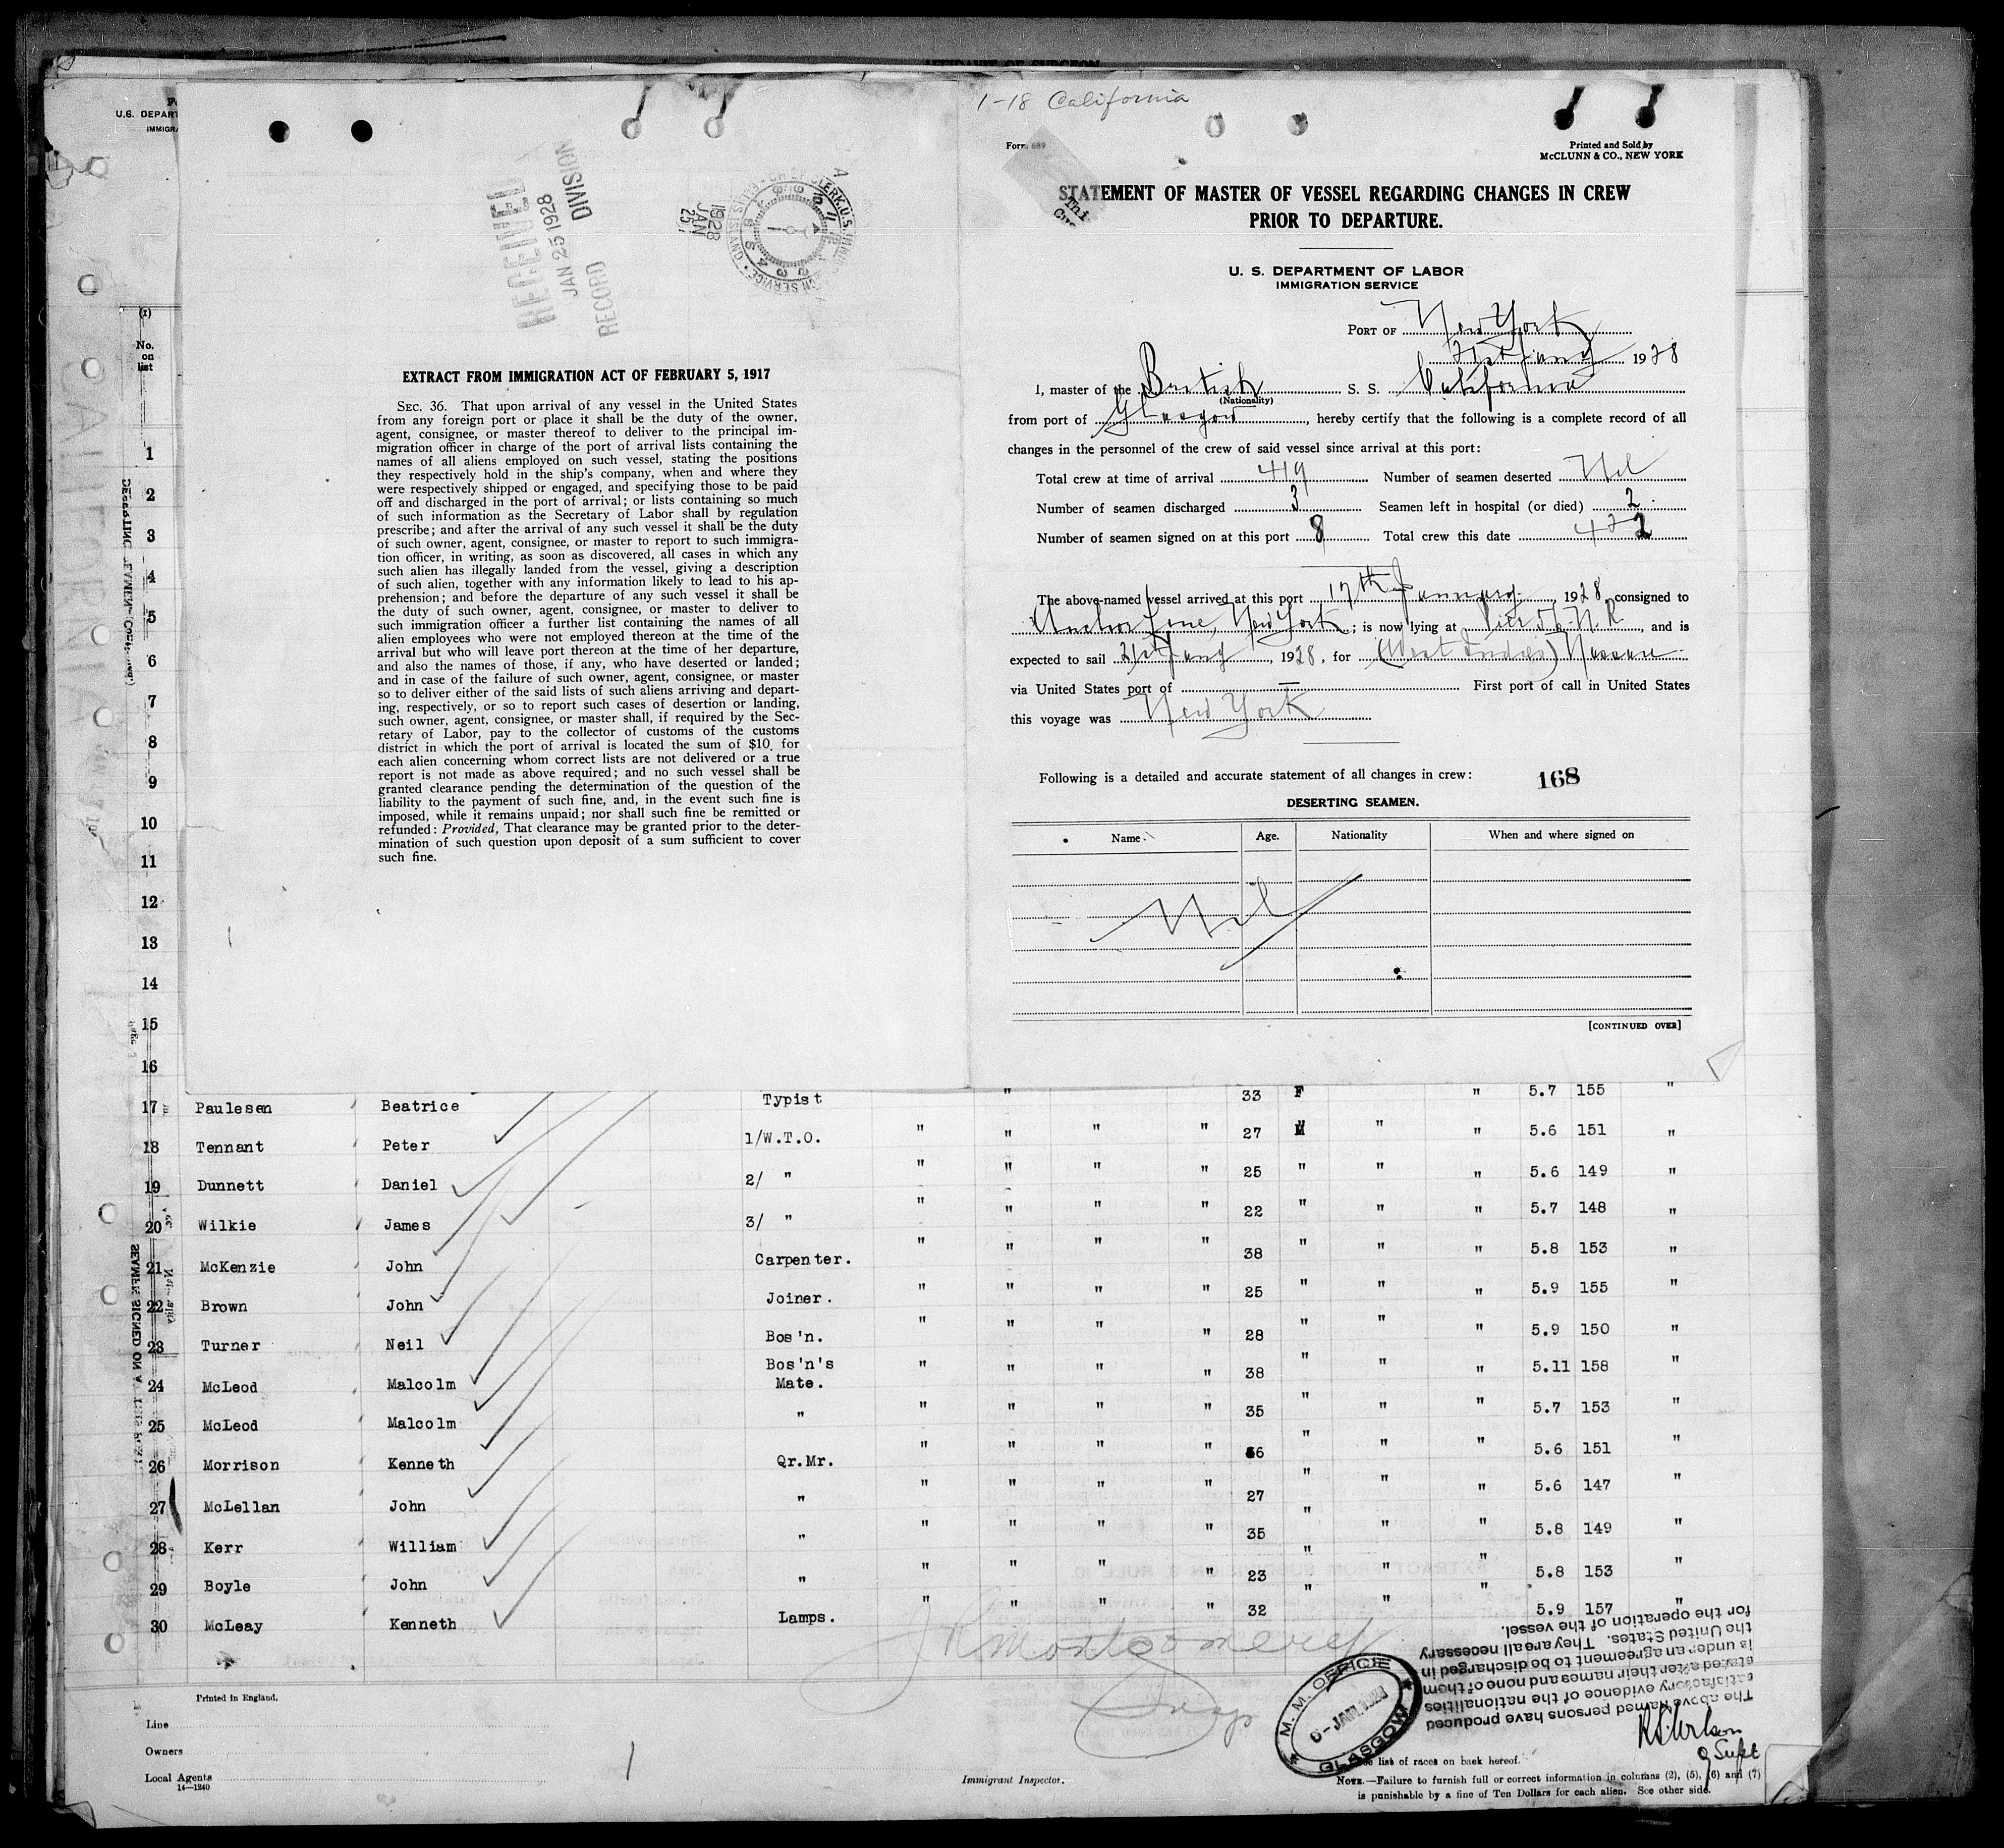 AFFIDAVIT OF SURGEON
U.S. DEPART
IMMIGRA
(1)
No.
on
list
CALIFORNIA
RECEIVED
JAN 25 1928
RECORD DIVISION
1928
JAN
25
EXTRACT FROM IMMIGRATION ACT OF FEBRUARY 5, 1917
SEC. 36. That upon arrival of any vessel in the United States
from any foreign port or place it shall be the duty of the owner,
agent, consignee, or master thereof to deliver to the principal im-
migration officer in charge of the port of arrival lists containing the
names of all aliens employed on such vessel, stating the positions
they respectively hold in the ship's company, when and where they
were respectively shipped or engaged, and specifying those to be paid
off and discharged in the port of arrival; or lists containing so much
of such information as the Secretary of Labor shall by regulation
prescribe; and after the arrival of any such vessel it shall be the duty
of such owner, agent, consignee, or master to report to such immigra-
tion officer, in writing, as soon as discovered, all cases in which any
such alien has illegally landed from the vessel, giving a description
of such alien, together with any information likely to lead to his ap-
prehension; and before the departure of any such vessel it shall be
the duty of such owner, agent, consignee, or master to deliver to
such immigration officer a further list containing the names of all
alien employees who were not employed thereon at the time of the
arrival but who will leave port thereon at the time of her departure,
and also the names of those, if any, who have deserted or landed;
and in case of the failure of such owner, agent, consignee, or master
so to deliver either of the said lists of such aliens arriving and depart-
ing, respectively, or so to report such cases of desertion or landing,
such owner, agent, consignee, or master shall, if required by the Sec-
retary of Labor, pay to the collector of customs of the customs
district in which the port of arrival is located the sum of $10 for
each alien concerning whom correct lists are not delivered or a true
report is not made as above required; and no such vessel shall be
granted clearance pending the determination of the question of the
liability to the payment of such fine, and, in the event such fine is
imposed, while it remains unpaid; nor shall such fine be remitted or
refunded: Provided, That clearance may be granted prior to the deter-
mination of such question upon deposit of a sum sufficient to cover
such fine.
1-18 California
Form 689
Printed and Sold by
McCLUNN & CO., NEW YORK
STATEMENT OF MASTER OF VESSEL REGARDING CHANGES IN CREW
PRIOR TO DEPARTURE.
U. S. DEPARTMENT OF LABOR
IMMIGRATION SERVICE
PORT OF New York
21st Jany 1928
I, master of the British S. S. California
(Nationality)
from port of Glasgow, hereby certify that the following is a complete record of all
changes in the personnel of the crew of said vessel since arrival at this port:
Total crew at time of arrival 419 Number of seamen deserted Nil
Number of seamen discharged 3 Seamen left in hospital (or died) 2
Number of seamen signed on at this port 8 Total crew this date 422
The above-named vessel arrived at this port 17th January 1928, consigned to
Anchor Line, New York; is now lying at Pier 56 N. R., and is
expected to sail 21st Jany, 1928, for (West Indies) Nassau
via United States port of — First port of call in United States
this voyage was New York
Following is a detailed and accurate statement of all changes in crew: 168
DESERTING SEAMEN.
Name Age. Nationality When and where signed on
Nil
[CONTINUED OVER]
1
2
3
4
5
6
7
8
9
10
11
12
13
14
15
16
17 Paulesen Beatrice Typist " 33 F " 5.7 155 "
18 Tennant Peter 1/W.T.O. " " " " 27 M " " 5.6 151 "
19 Dunnett Daniel 2/ " " " " " 25 " " " 5.6 149 "
20 Wilkie James 3/ " " " " " 22 " " " 5.7 148 "
21 McKenzie John Carpenter. " " " " 38 " " " 5.8 153 "
22 Brown John Joiner. " " " " 25 " " " 5.9 155 "
23 Turner Neil Bos'n. " " " " 28 " " " 5.9 150 "
24 McLeod Malcolm Bos'n's Mate. " " " " 38 " " " 5.11 158 "
25 McLeod Malcolm " " " " " 35 " " " 5.7 153 "
26 Morrison Kenneth Qr.Mr. " " " " 6 " " " 5.6 151 "
27 McLellan John " " " " " 27 " " " 5.6 147 "
28 Kerr William " " " " " 35 " " " 5.8 149 "
29 Boyle John " " " " " 23 " " " 5.8 153 "
30 McLeay Kenneth Lamps. " " " " 32 " " " 5.9 157 "
J K Montgomerie
Insp
The above named persons have produced
satisfactory evidence of the nationalities
stated after their names and none of them
is under an agreement to be discharged in
the United States. They are all necessary
for the operation of the vessel.
M. M. OFFICE
6 - JAN. 1928
GLASGOW
Supt
Printed in England.
Line
Owners
Local Agents
14—1240
Immigrant Inspector.
list of races on back hereof.
NOTE.—Failure to furnish full or correct information in columns (2), (5), (6) and (7)
is punishable by a fine of Ten Dollars for each alien. See other side.